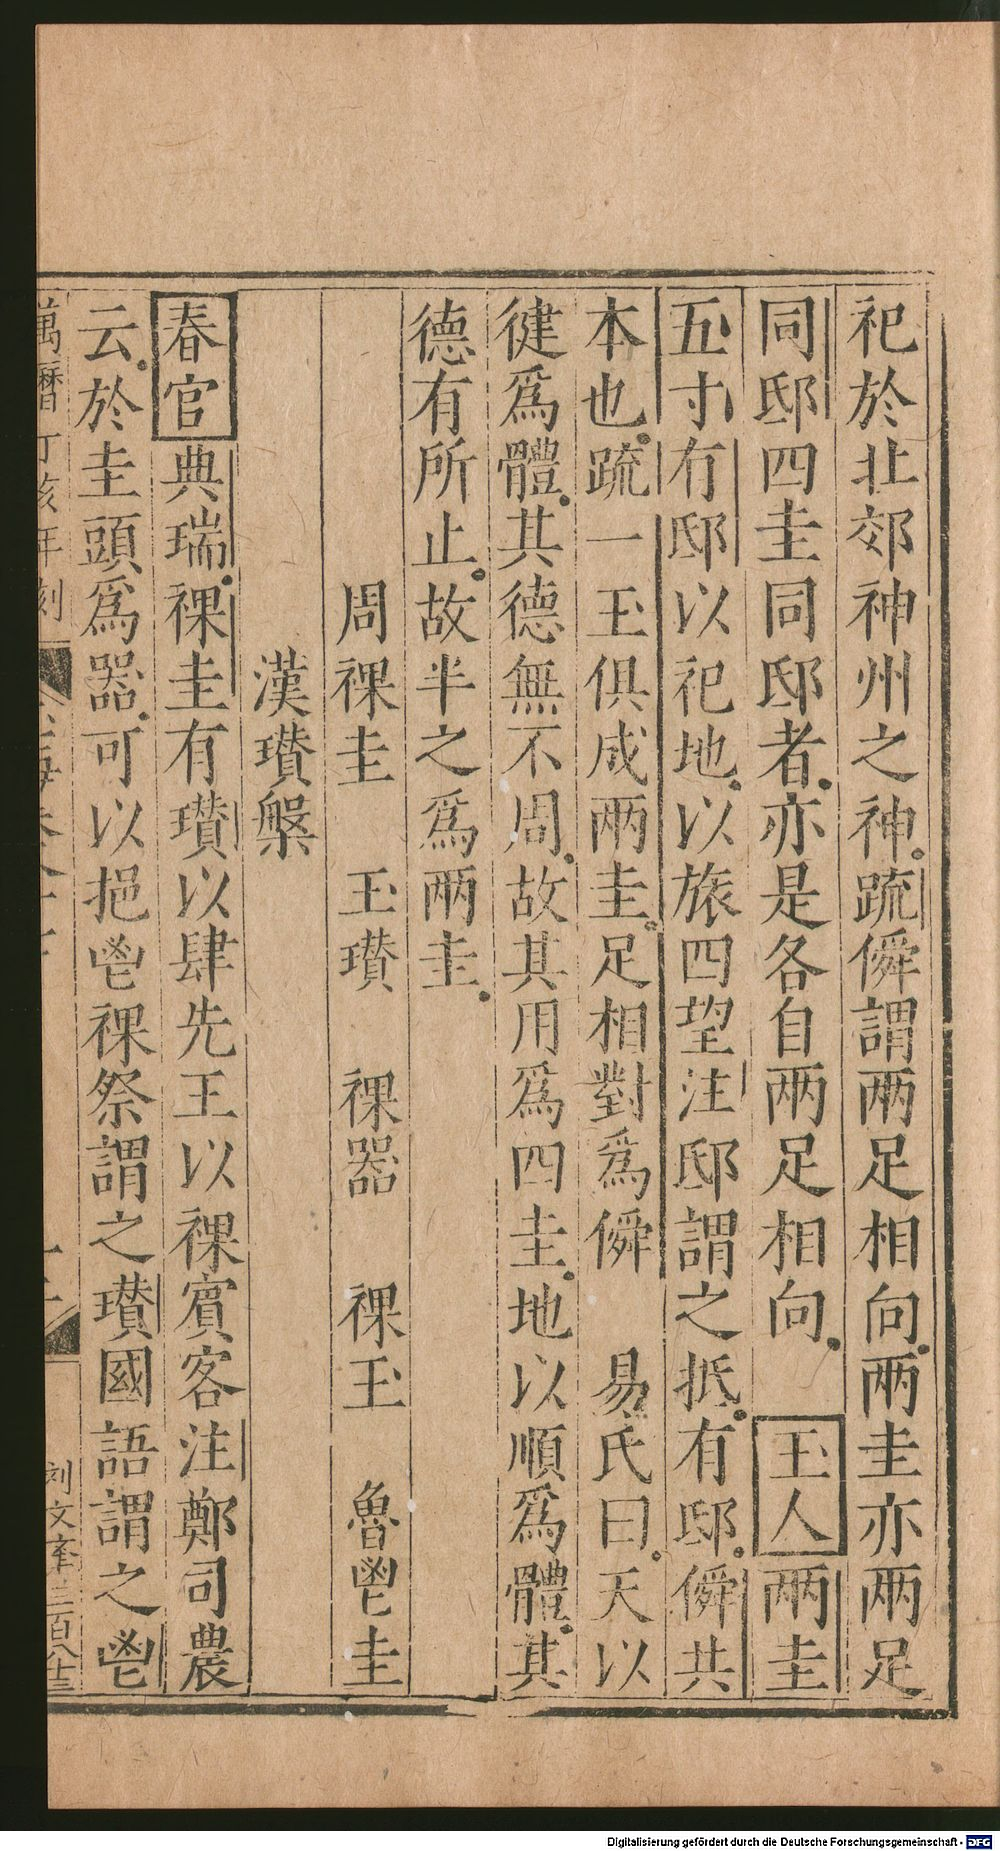 祀於北郊神州之神疏僢謂兩足相向兩圭亦兩足
同邸四圭同邸者亦是各自兩足相向　玉人兩圭
五寸有邸以祀地以旅四望注邸謂之抵有邸僢共
本也疏一玉俱成兩圭足相對爲僢　易氏曰天以
徤爲體其德無不周故其用爲四圭地以順爲體其
德有所止故半之爲兩圭
周祼圭　玉瓉　祼器　祼玉　魯鬯圭
漢瓉槃
春官典瑞祼圭有瓉以肆先王以祼賓客注鄭司農
云於圭頭爲器可以挹鬯祼祭謂之瓉國語謂之鬯
萬曆丁亥年刻
Digitalisierung gefördert durch die Deutsche Forschungsgemeinschaft - DFG